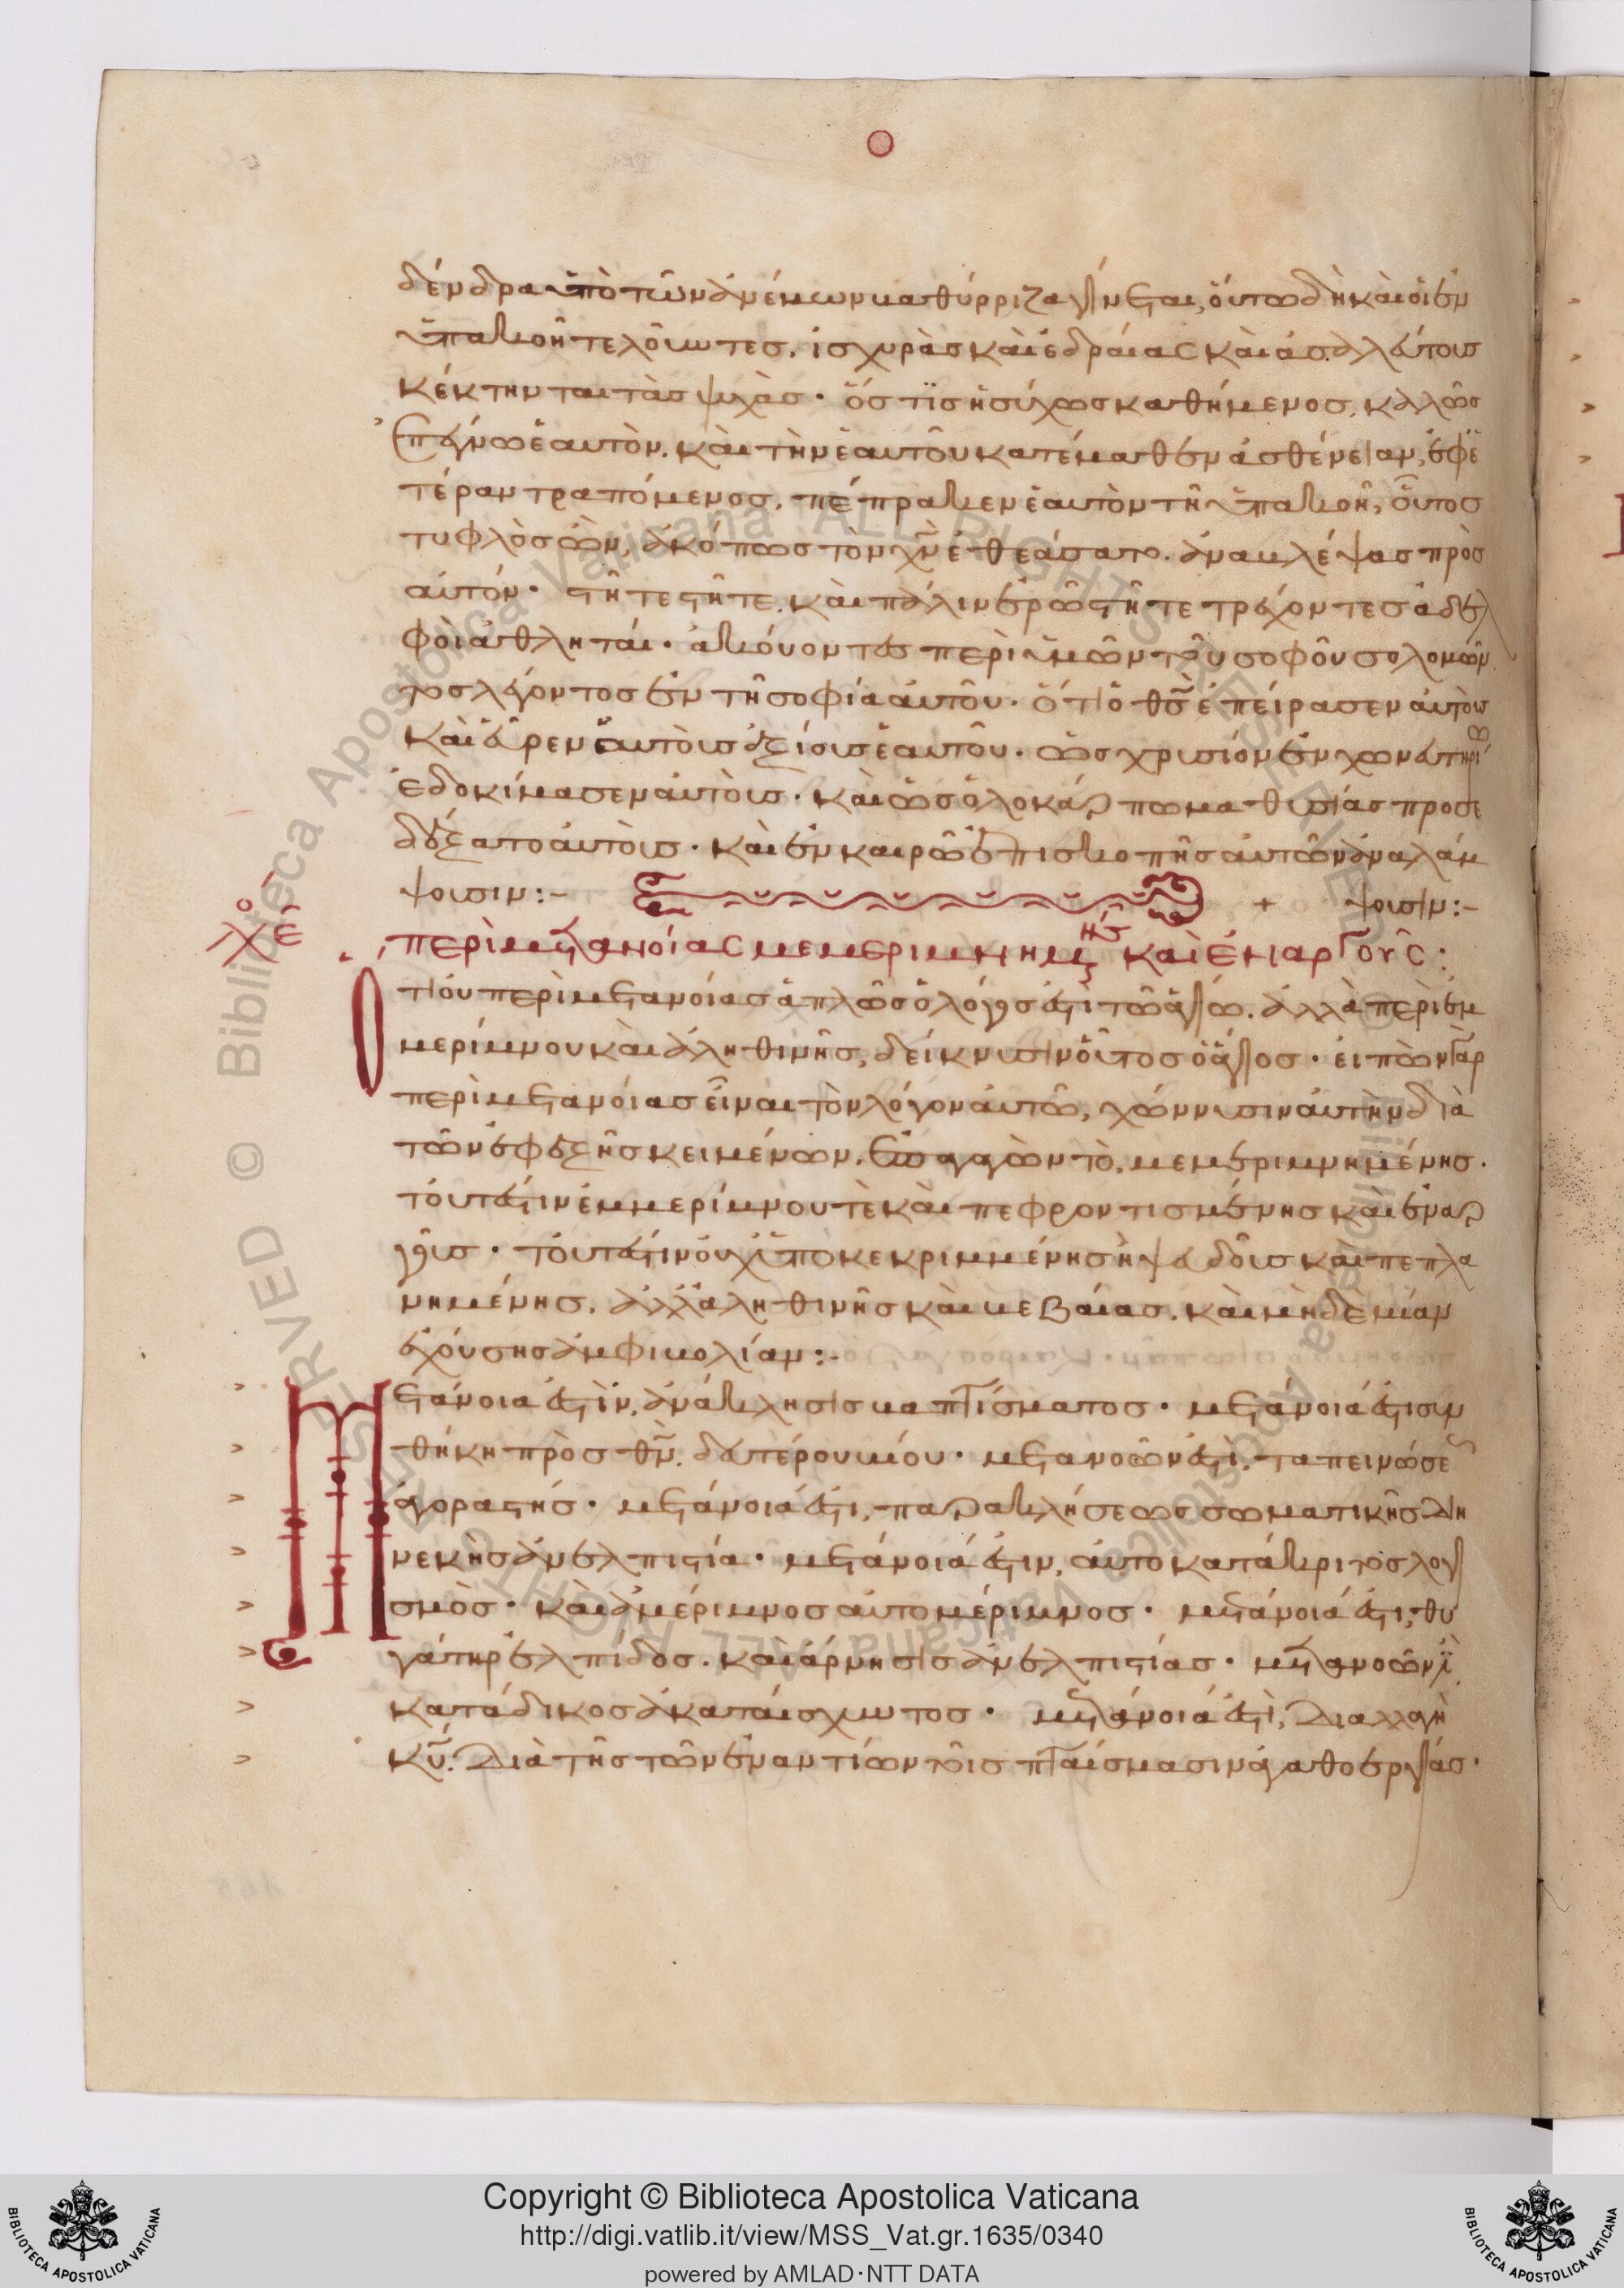 δένδρα ὑπὸ τῶν ἀνέμων βαθύρριζα γίνεται, οὕτω δὴ καὶ οἱ ἐν
ὑπακοῆ τελοῦντες, ἰσχυρὰς καὶ ἑδραίας καὶ ἀσαλεύτους
κέκτηνται τὰς ψυχάς· ὅς τις ἡσύχως καθήμενος, καλῶς
ἐπέγνω ἑαυτὸν, καὶ τὴν ἑαυτοῦ κατέμαθεν ἀσθένειαν, ἐφ' ἑ
τέραν τραπόμενος, πέπρακεν ἑαυτὸν τῆ ὑπακοῆ, οὗτος
τυφλὸς ὢν, ἀκόπως τὸν χν ἐθεάσατο, ἀναβλέψας πρὸς
αὐτόν· στῆτε στῆτε, καὶ πάλιν ἐρῶ στῆτε τρέχοντες ἀδελ
φοὶ ἀθληταί· ἀκούοντες περὶ ὑμῶν τοῦ σοφοῦ σολομῶν
τος λέγοντος ἐν τῆ σοφία αὐτοῦ· ὅτι ὁ θς ἐπείρασεν αὐτοὺς
καὶ εὗρεν αὐτοὺς ἀξίους ἑαυτοῦ· ὡς χρυσίον ἐν χωνευτηρίω
ἐδοκίμασεν αὐτοὺς· καὶ ὡς ὁλοκάρπωμα θυσίας προσε
δέξατο αὐτοὺς· καὶ ἐν καιρῶ ἐπισκοπῆς αὐτῶν ἀναλάμ
ψουσιν:– + ψουσιν:–
λο χε
περὶ μετανοίας μεμεριμνημένης καὶ ἐναργοῦς:
Οτι οὐ περὶ μετανοίας ἁπλῶς ὁ λόγος ἐστὶ τῶ ἁγίω. ἀλλὰ περὶ ἐμ
μερίμνου καὶ ἀληθινῆς, δείκνυσιν οὗτος ὁ ἅγιος· εἰπὼν γὰρ
περὶ μετανοίας εἶναι τὸν λόγον αὐτῶ, χώννυσιν αὐτὴν διὰ
τῶν ἐφεξῆς κειμένων. εἰσαγαγὼν τὸ, μεμεριμνημένης·
τουτέστιν ἐμμερίμνου τὲ καὶ πεφροντισμένης καὶ ἐναρ
γοῦς· τουτέστιν οὐχ ὑποκεκριμμένης ἢ ψευδοῦς καὶ πεπλα
νημένης. ἀλλ' ἀληθινῆς καὶ βεβαίας, καὶ μηδεμίαν
ἐχούσης ἀμφιβολίαν:–
Μετάνοια ἐστὶν, ἀνάκλησις βαπτίσματος· μετάνοιά ἐστι συν
θήκη πρὸς θν, δευτέρου βίου· μετανοῶν ἐστὶ, ταπεινώσεως
ἀγοραστής· μετάνοιά ἐστι, παρακλήσεως σωματικῆς διη
νεκὴς ἀνελπιστία· μετάνοιά ἐστιν, αὐτοκατάκριτος λογι
σμός· καὶ ἀμέριμνος αὐτομέριμνος· μετάνοιά ἐστι, θυ
γάτηρ ἐλπίδος. καὶ ἄρνησις ἀνελπιστίας· μετανοῶν ἐστὶ
κατάδικος ἀκαταίσχυντος· μετάνοιά ἐστὶ, διαλλαγὴ
κυ. διὰ τῆς τῶν ἐναντίων τοῖς πταίσμασιν ἀγαθοεργίας·
Copyright © Biblioteca Apostolica Vaticana
http://digi.vatlib.it/view/MSS_Vat.gr.1635/0340
powered by AMLAD·NTT DATA
BIBLIOTECA APOSTOLICA VATICANA
BIBLIOTECA APOSTOLICA VATICANA